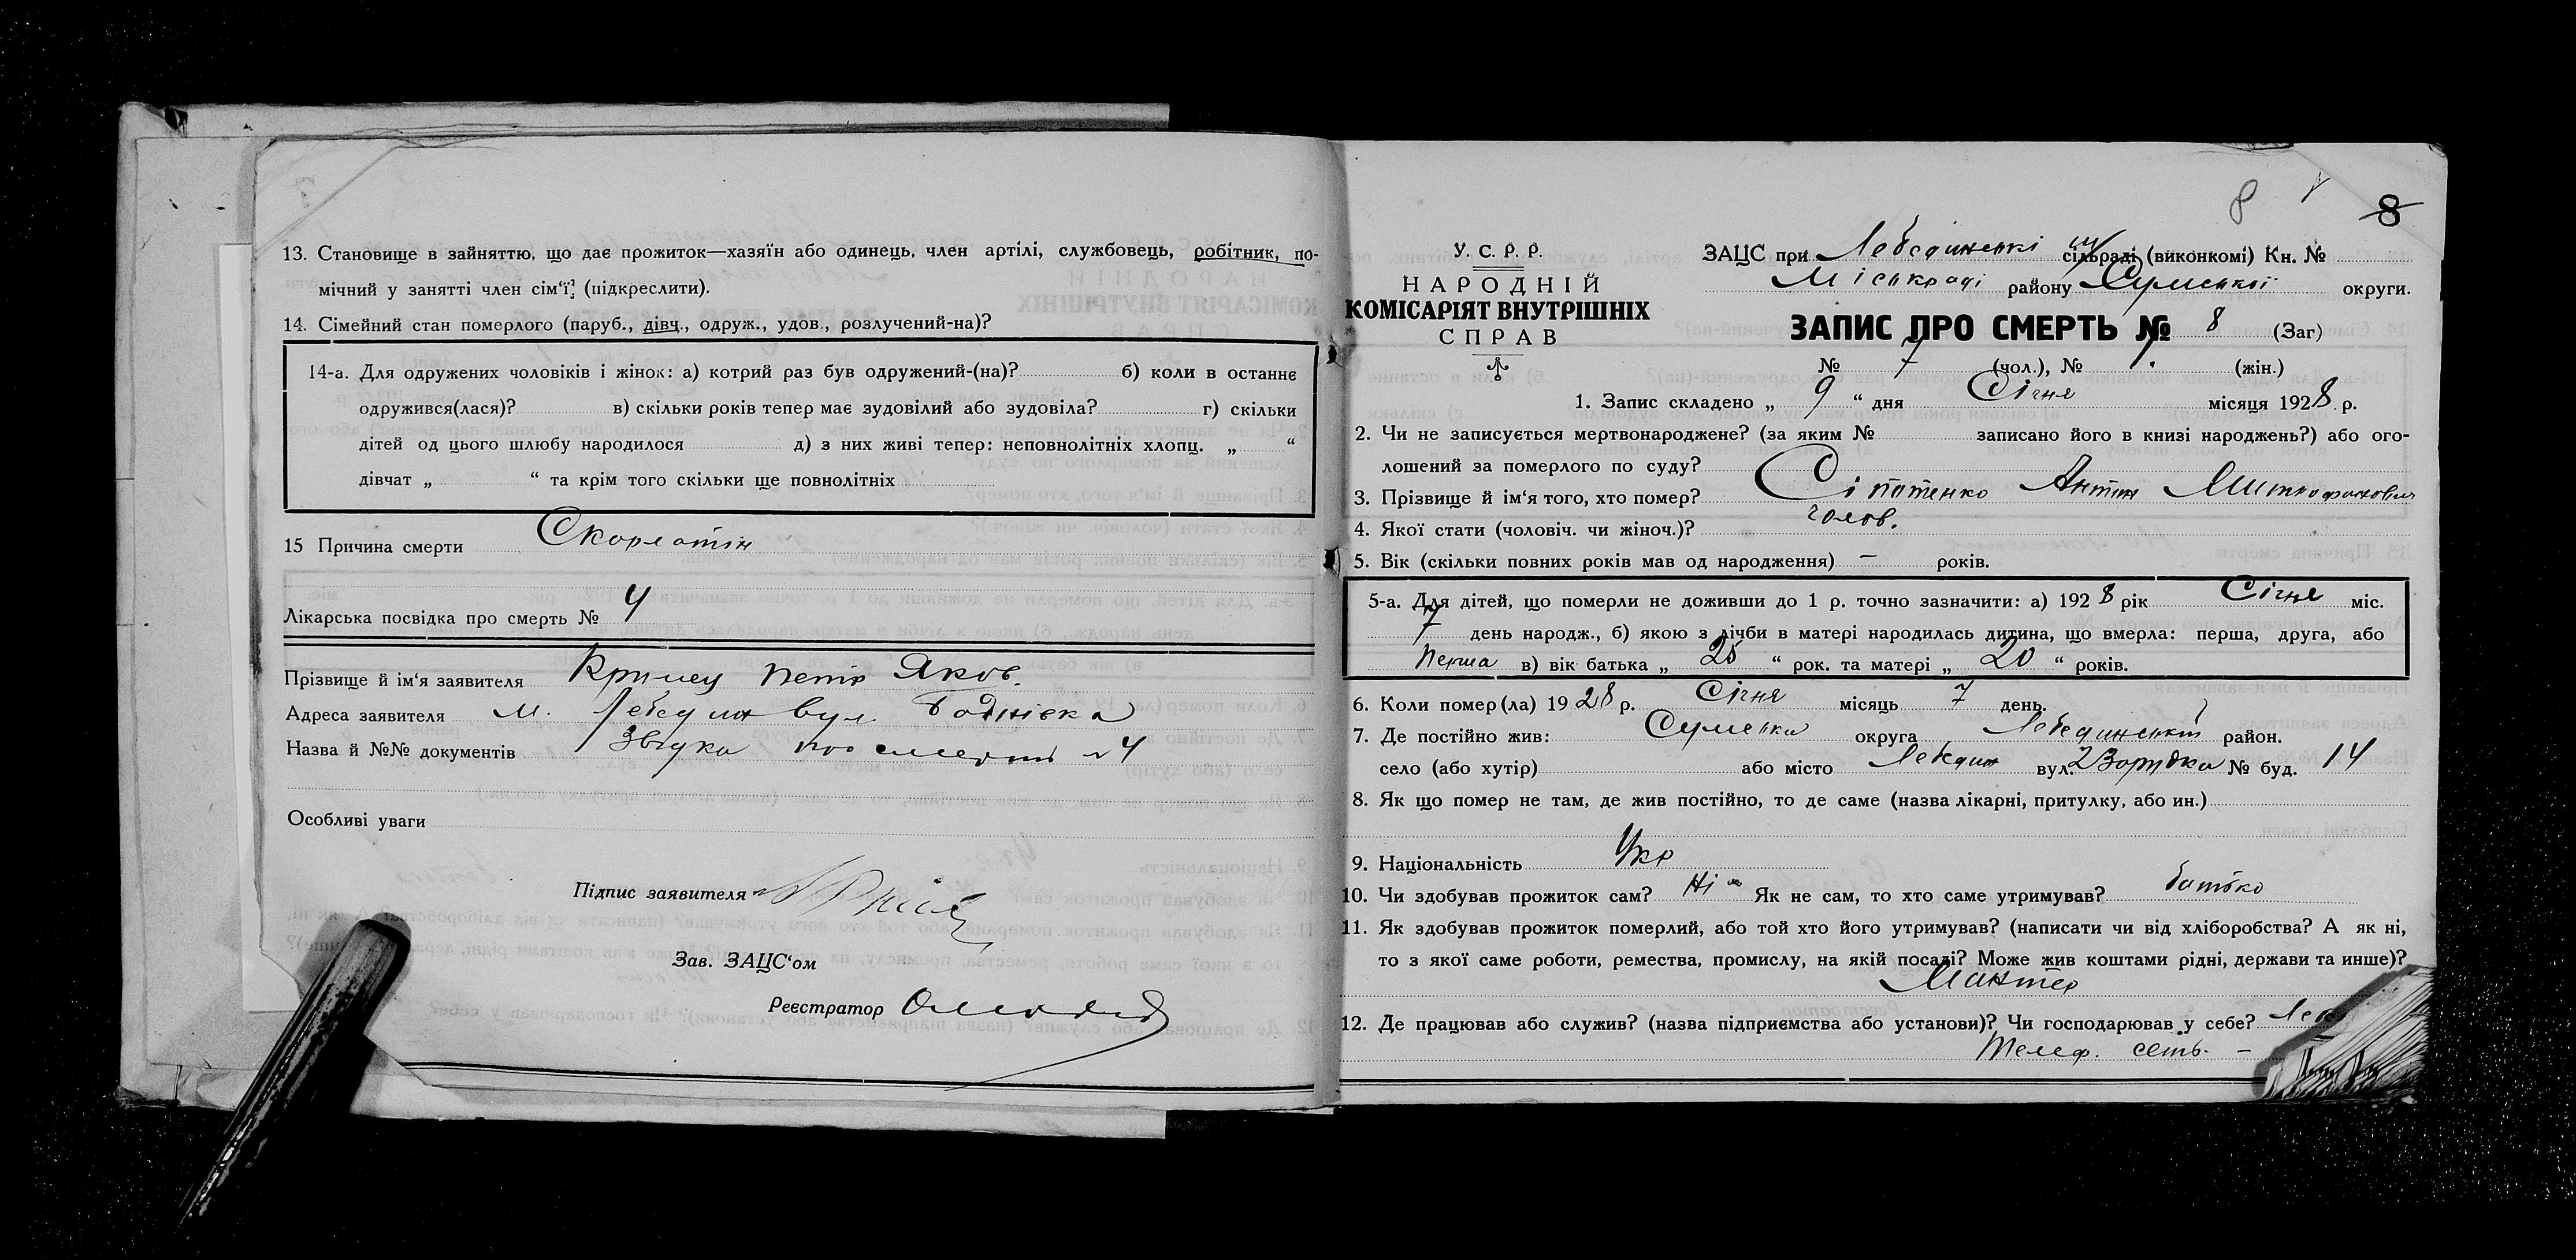 13. Становище в зайняттю, що дає прожиток—хазяїн або одинець, член артілі, службовець, робітник, по-
мічний у занятті член сім'ї (підкреслити).
14. Сімейний стан померлого (паруб., дівч., одруж., удов., розлучений-на)?
14-а. Для одружених чоловіків і жінок: а) котрий раз був одружений-(на)? б) коли в останнє
одружився(лася)? в) скільки років тепер має зудовілий або зудовіла? г) скільки
дітей од цього шлюбу народилося д) з них живі тепер: неповнолітніх хлопц. „ “
дівчат „ “ та крім того скільки ще повнолітніх
15 Причина смерти Скорлотін
Лікарська посвідка про смерть № 4
Прізвище й ім'я заявителя Петр Яков.
Адреса заявителя м. Лебедин вул.
Назва й №№ документів про смерть №4
Особливі уваги
Підпис заявителя
Зав. ЗАЦС'ом
Реєстратор
8 8
У. С. Р. Р.
НАРОДНІЙ
КОМІСАРІЯТ ВНУТРІШНІХ
СПРАВ
ЗАЦС при Лебединські сільраді (виконкомі) Кн. №
Міськраді району Сумської округи.
ЗАПИС ПРО СМЕРТЬ № 8 (Заг)
№ 7 (чол.), № 1. (жін.)
1. Запис складено „ 9 “ дня Січня місяця 1928 р.
2. Чи не записується мертвонароджене? (за яким № записано його в книзі народжень?) або ого-
лошений за померлого по суду?
3. Прізвище й ім'я того, хто помер? Сіпотенко Антін Митрофанович
4. Якої стати (чоловіч. чи жіноч.)? чолов.
5. Вік (скільки повних років мав од народження) — років.
5-а. Для дітей, що померли не доживши до 1 р. точно зазначити: а) 1928 рік Січня міс.
7 день народж., б) якою з лічби в матері народилась дитина, що вмерла: перша, друга, або
перша в) вік батька „ 25 “ рок. та матері „ 20 “ років.
6. Коли помер(ла) 1928 р. Січня місяць 7 день.
7. Де постійно жив: Сумська округа Лебединський район.
село (або хутір) або місто Лебедин вул. № буд. 14
8. Як що помер не там, де жив постійно, то де саме (назва лікарні, притулку, або ин.)
9. Національність Укр
10. Чи здобував прожиток сам? Ні Як не сам, то хто саме утримував? батько
11. Як здобував прожиток померлий, або той хто його утримував? (написати чи від хліборобства? А як ні,
то з якої саме роботи, ремества, промислу, на якій посаді? Може жив коштами рідні, держави та инше)?
Монтер
12. Де працював або служив? (назва підприємства або установи)? Чи господарював у себе?
Телеф. сеть. —